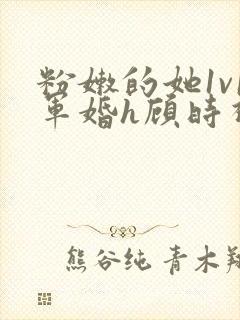 粉嫩的她1v1
军婚h顾时
熊谷纯 青木翔